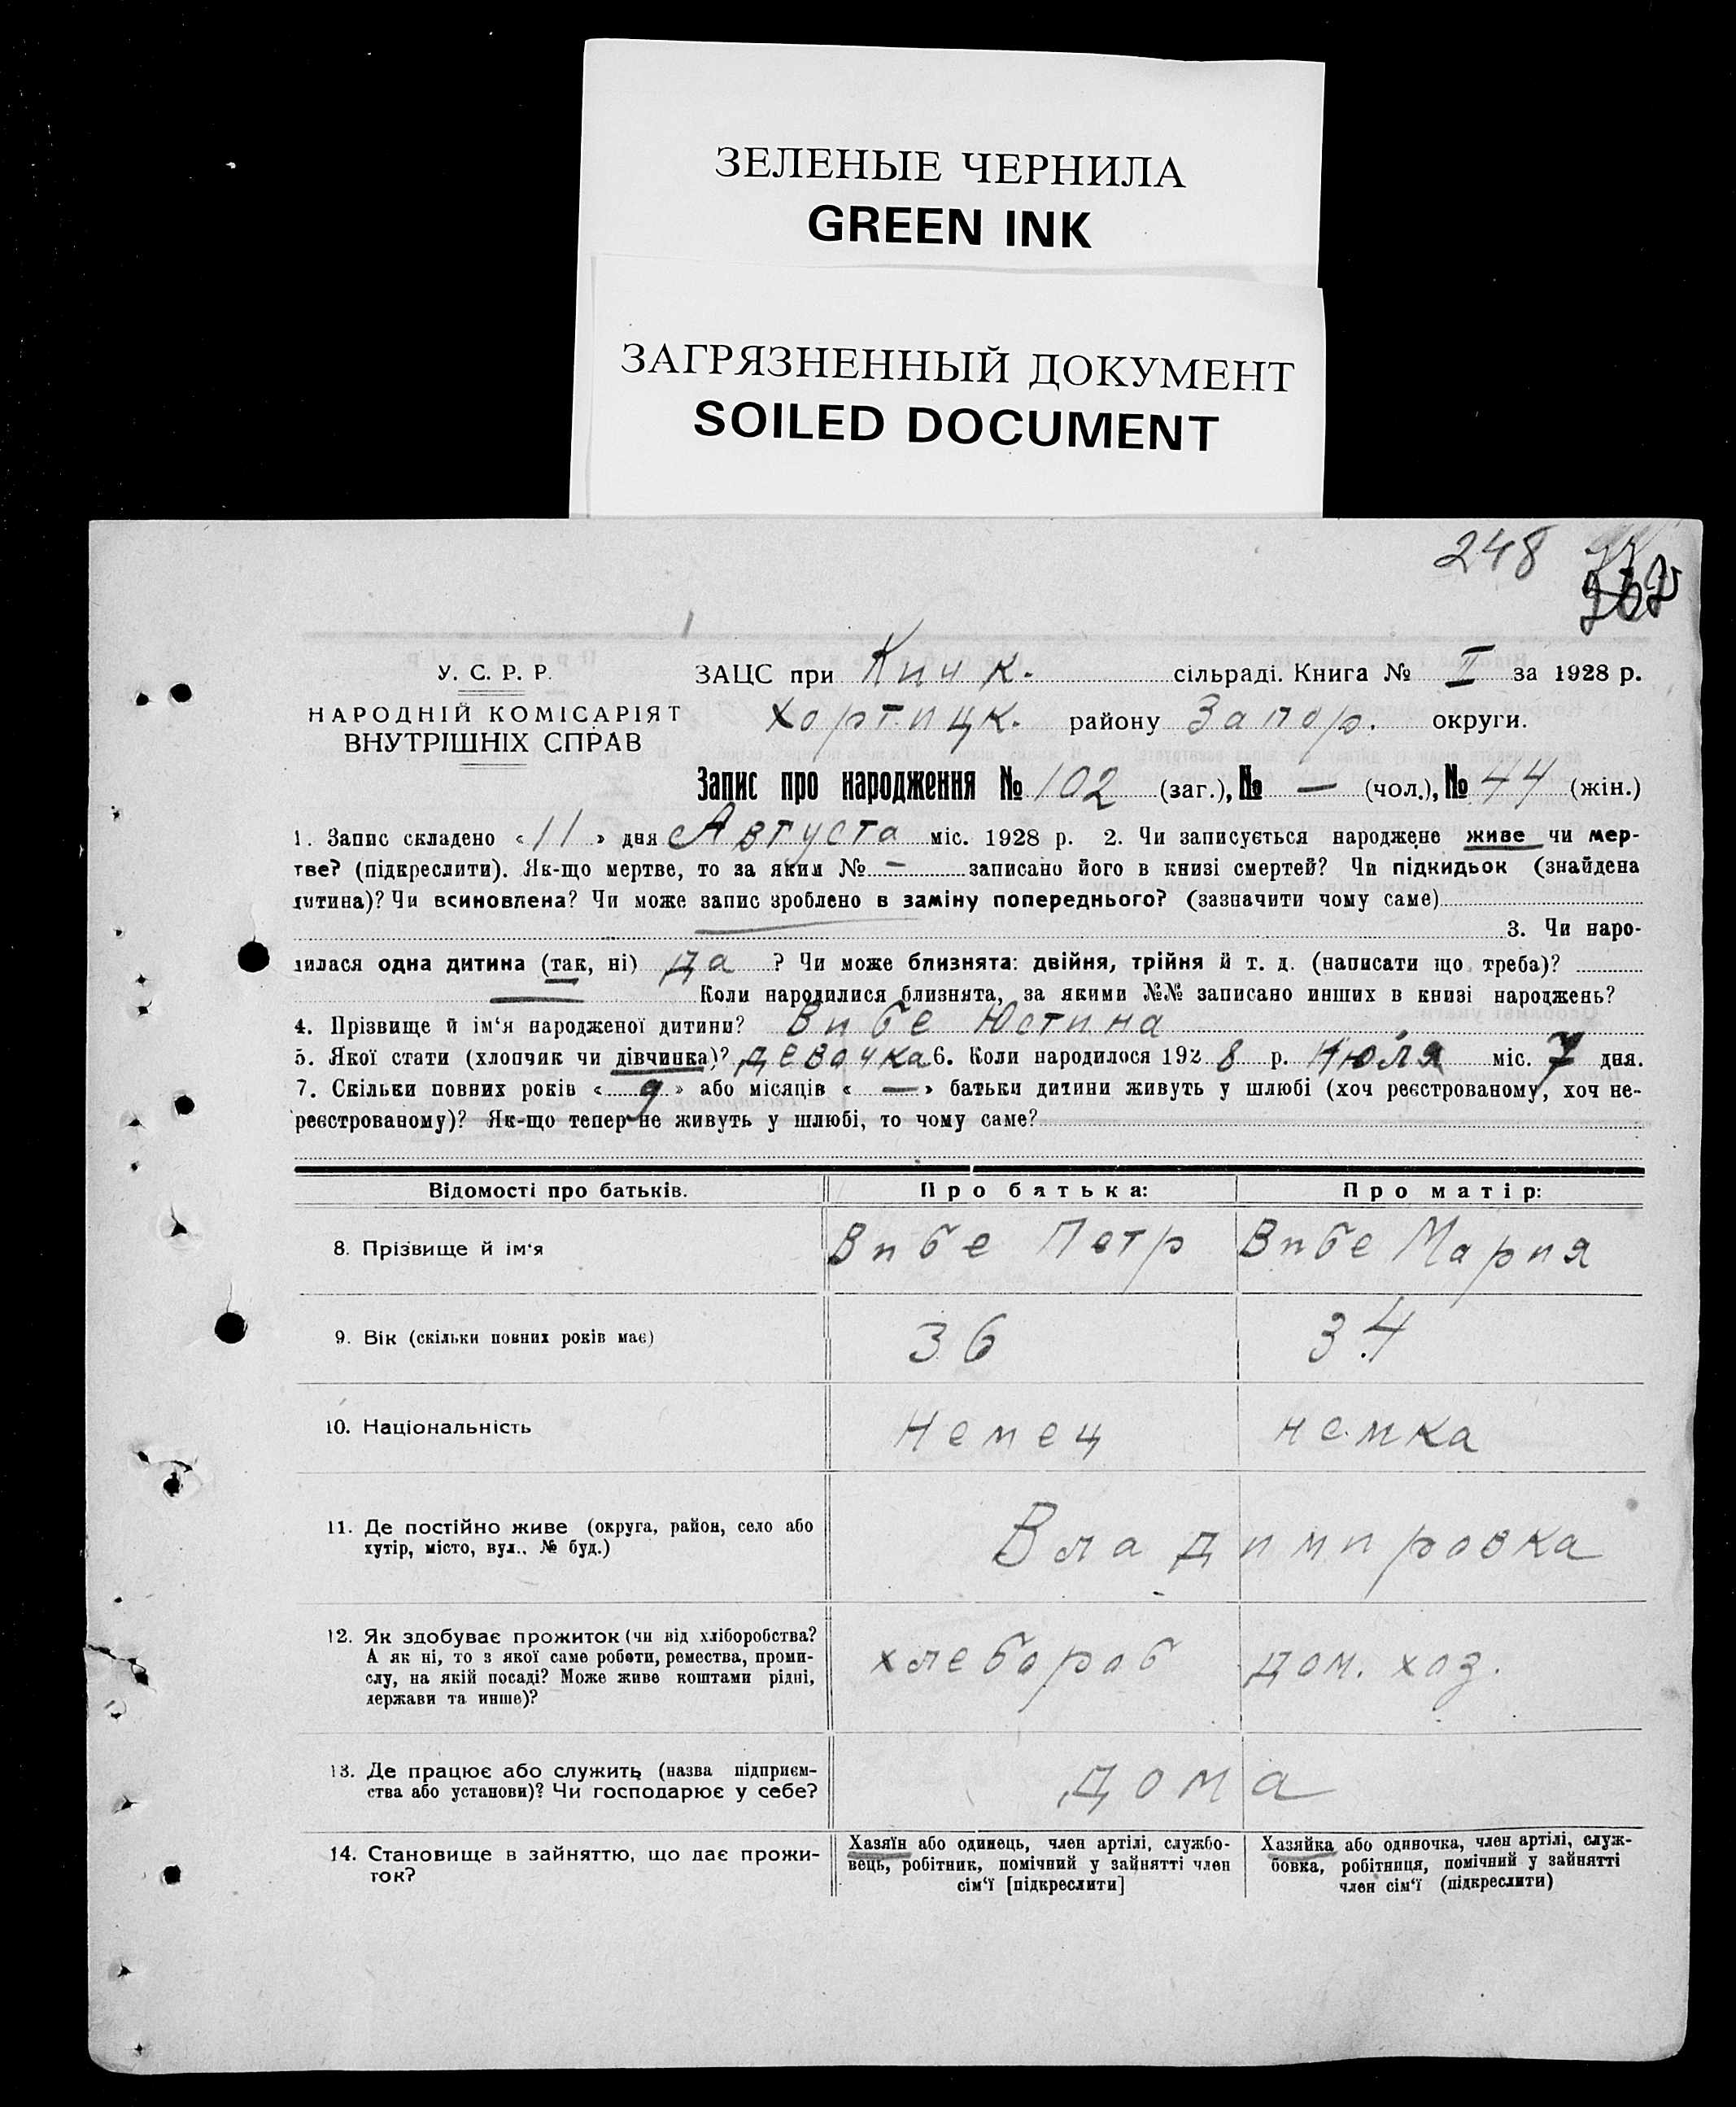 ЗЕЛЕНЫЕ ЧЕРНИЛА
GREEN INK
ЗАГРЯЗНЕННЫЙ ДОКУМЕНТ
SOILED DOCUMENT
248
У. С. Р. Р.
НАРОДНІЙ КОМІСАРІЯТ
ВНУТРІШНІХ СПРАВ
ЗАЦС при Кичк. сільраді. Книга № II за 1928 р.
Хортицк. району Запор. округи.
Запис про народження № 102 (заг.), № — (чол.), № 44 (жін.)
1. Запис складено «11» дня Августа міс. 1928 р. 2. Чи записується народжене живе чи мер-
тве? (підкреслити). Як-що мертве, то за яким № — записано його в книзі смертей? Чи підкидьок (знайдена
дитина)? Чи всиновлена? Чи може запис зроблено в заміну попереднього? (зазначити чому саме)
3. Чи наро-
дилася одна дитина (так, ні) Да ? Чи може близнята: двійня, трійня й т. д. (написати що треба)?
— Коли народилися близнята, за якими №№ записано инших в книзі народжень?
4. Прізвище й ім‘я народженої дитини? Вибе Юстина
5. Якої стати (хлопчик чи дівчинка)? Девочка 6. Коли народилося 1928 р. Июля міс. 7 дня.
7. Скільки повних років «9» або місяців «—» батьки дитини живуть у шлюбі (хоч реєстрованому, хоч не-
реєстрованому)? Як-що тепер не живуть у шлюбі, то чому саме?
Відомості про батьків. Про батька: Про матір:
8. Прізвище й ім‘я Вибе Петр Вибе Мария
9. Вік (скільки повних років має) 36 34
10. Національність Немец немка
11. Де постійно живе (округа, район, село або
хутір, місто, вул., № буд.) Владимировка
12. Як здобуває прожиток (чи від хліборобства?
А як ні, то з якої саме роботи, ремества, проми-
слу, на якій посаді? Може живе коштами рідні,
держави та инше)? хлебороб дом. хоз.
13. Де працює або служить (назва підприєм-
ства або установи)? Чи господарює у себе? Дома
14. Становище в зайняттю, що дає прожи-
ток?
Хазяїн або одинець, член артілі, службо-
вець, робітник, помічний у зайнятті член
сім‘ї [підкреслити]
Хазяйка або одиночка, член артілі, служ-
бовка, робітниця, помічний у зайнятті
член сім‘ї (підкреслити)